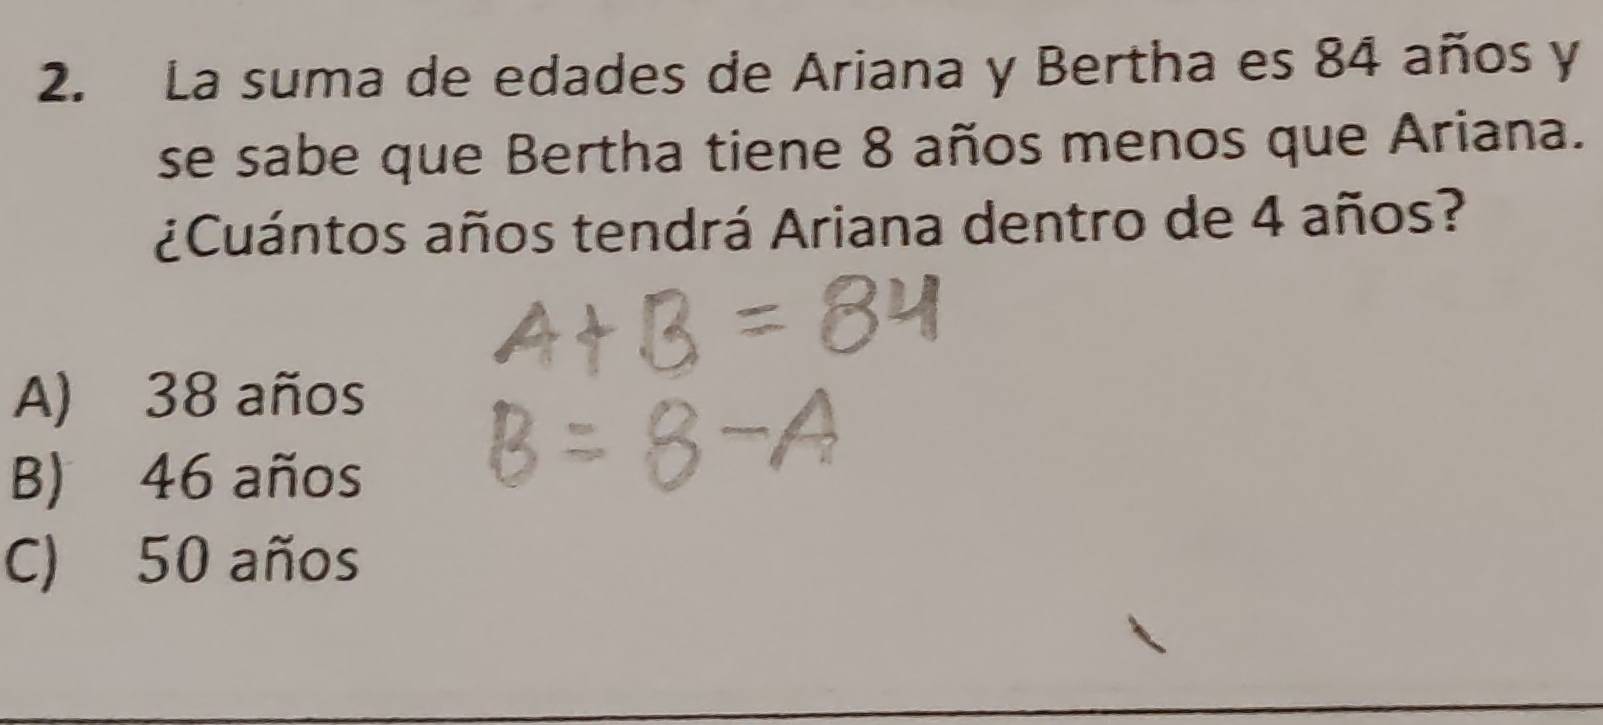 2. La suma de edades de Ariana y Bertha es 84 años y
se sabe que Bertha tiene 8 años menos que Ariana.
¿Cuántos años tendrá Ariana dentro de 4 años?
A+B=84
A) 38 años
B=8-A
B) 46 años
C) 50 años